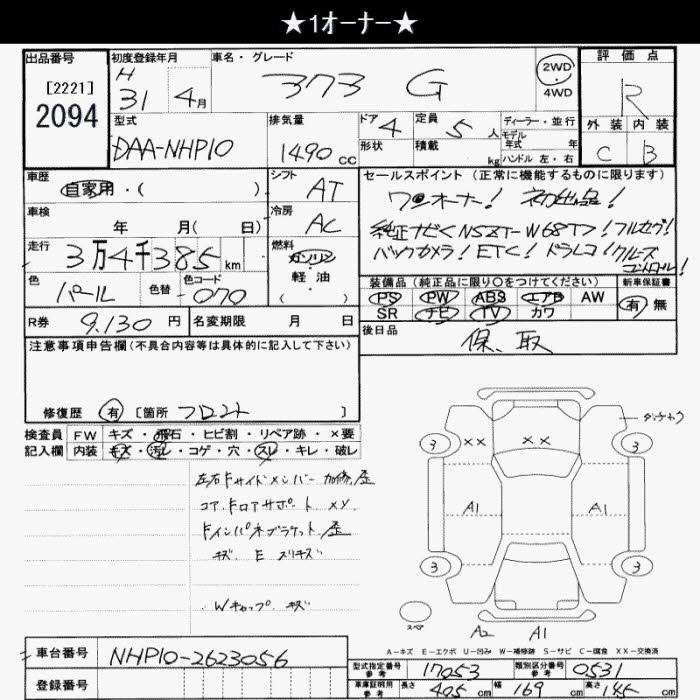 ★1オーナー★
出品番号
[2221]
2094
初度登録年月
H 31年 4月
車名・グレード
373 G
2WD
4WD
評価点
R
外装 内装
C B
型式
DAA-NHP10
排気量
1490 cc
ドア 4
形状
定員 5人
積載 kg
ディーラー・並行
モデル年式 年
ハンドル 左・右
車歴
自家用・( )
シフト
AT
車検
年 月( 日)
冷房
AC
走行
3万4千385km
燃料
ガソリン
軽・油
( )
色
パール
色替
色コード
070
R券 9.130円
名変期限 月 日
セールスポイント(正常に機能するものに限ります)
ワンオーナー! 初出品!
純正ナビ<NSZT-W68T>!フルセグ!
バックカメラ!ETC!ドラレコ!クルーズ
コントロール!
装備品(純正品に限り○をつけてください)
PS PW ABS エアB AW
SR ナビ TV カワ
新車保証書
有・無
後日品
保、取
注意事項申告欄(不具合内容等は具体的に記入して下さい)
修復歴 有 [箇所 フロント ]
検査員
記入欄
FW キズ・飛石・ヒビ割・リペア跡・×要
内装 キズ・汚レ・コゲ・穴・スレ・キレ・破レ
左右Fサイドメンバー 加修、歪
コア、Fロアサポート XX
Fインパネブラケット 歪
キズ E スリキズ
Wキャップ キズ
3
×× ××
3
A1
A1
3
3
スペア
A2 A1
A-キズ E-エクボ U-凹み W-補修跡 S-サビ C-腐食 XX-交換済
車台番号 NHP10-2623056
登録番号
型式指定番号 参考 17053
類別区分番号 参考 0531
車庫証明用 参考 長さ 405cm 幅 169cm 高さ 145cm